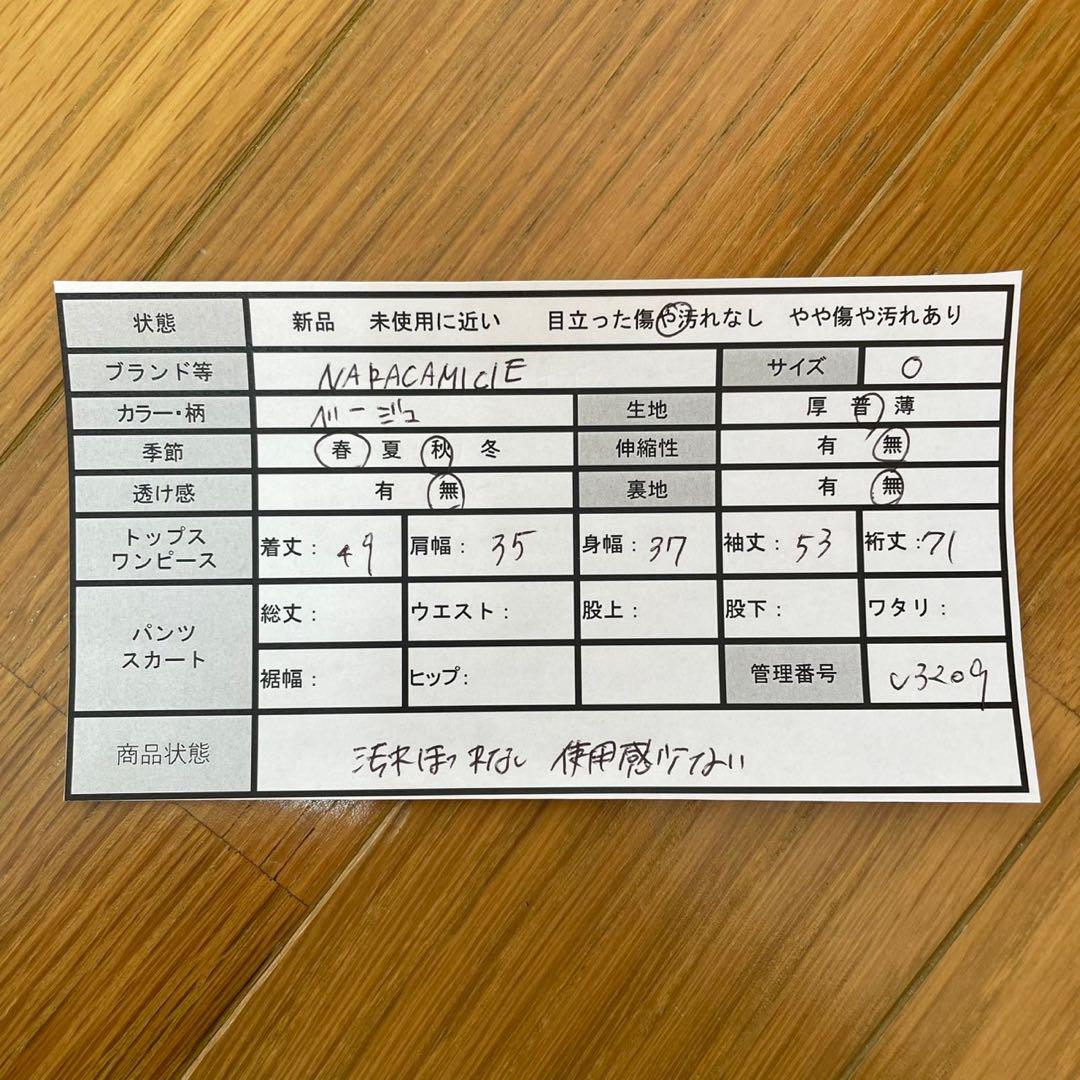 状態 新品 未使用に近い 目立った傷や汚れなし やや傷や汚れあり
ブランド等 NARACAMICIE サイズ 0
カラー・柄 ベージュ 生地 厚 普 薄
季節 春 夏 秋 冬 伸縮性 有 無
透け感 有 無 裏地 有 無
トップス
ワンピース
着丈: 49 肩幅: 35 身幅: 37 袖丈: 53 裄丈: 71
パンツ
スカート
総丈: ウエスト: 股上: 股下: ワタリ:
裾幅: ヒップ: 管理番号 c3209
商品状態 汚れほつれなし 使用感少ない